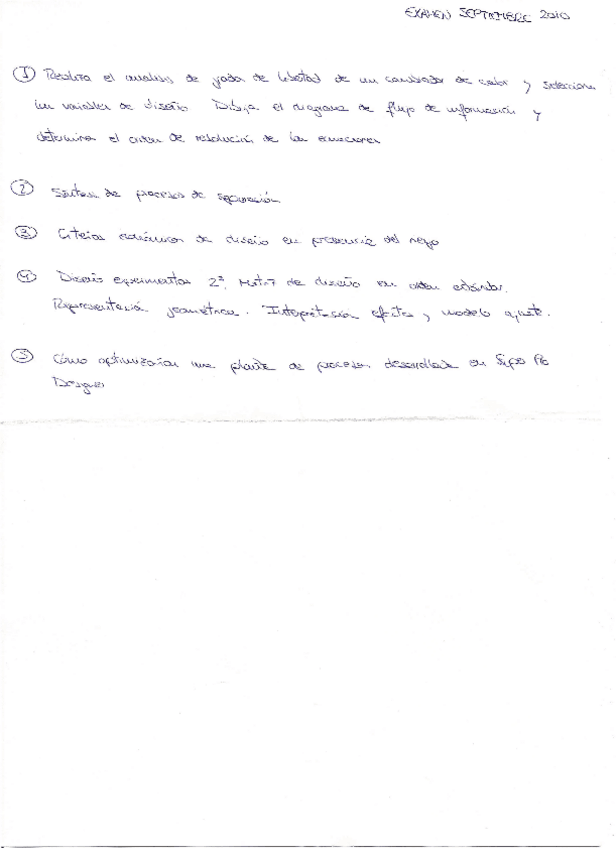 EXAMEN SEPTIEMBRE 2010
① Realiza el analisis de grados de libertad de un cambiador de calor y selecciona
las variables de diseño Dibuja el diagrama de flujo de información y
determina el orden de resolución de las ecuaciones
② Síntesis de procesos de separación
③ Criterios económicos de diseño en presencia del riesgo
④ Diseño experimentos 2³. Matriz de diseño en orden estándar.
Representación geométrica. Interpretación efectos y modelo ajuste.
⑤ Cómo optimizarías una planta de procesos desarrollada en Super Pro
Designer